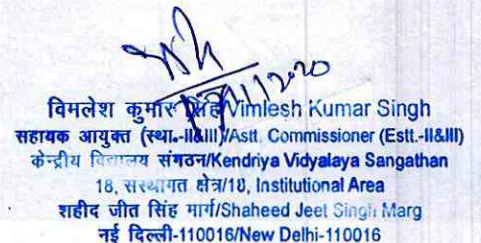 विमलेश कुमार सिंह/Vimlesh Kumar Singh
सहायक आयुक्त (स्था.-II&III)/Astt. Commissioner (Estt.-II&III)
केन्द्रीय विद्यालय संगठन/Kendriya Vidyalaya Sangathan
18, संस्थागत क्षेत्र/18, Institutional Area
शहीद जीत सिंह मार्ग/Shaheed Jeet Singh Marg
नई दिल्ली-110016/New Delhi-110016